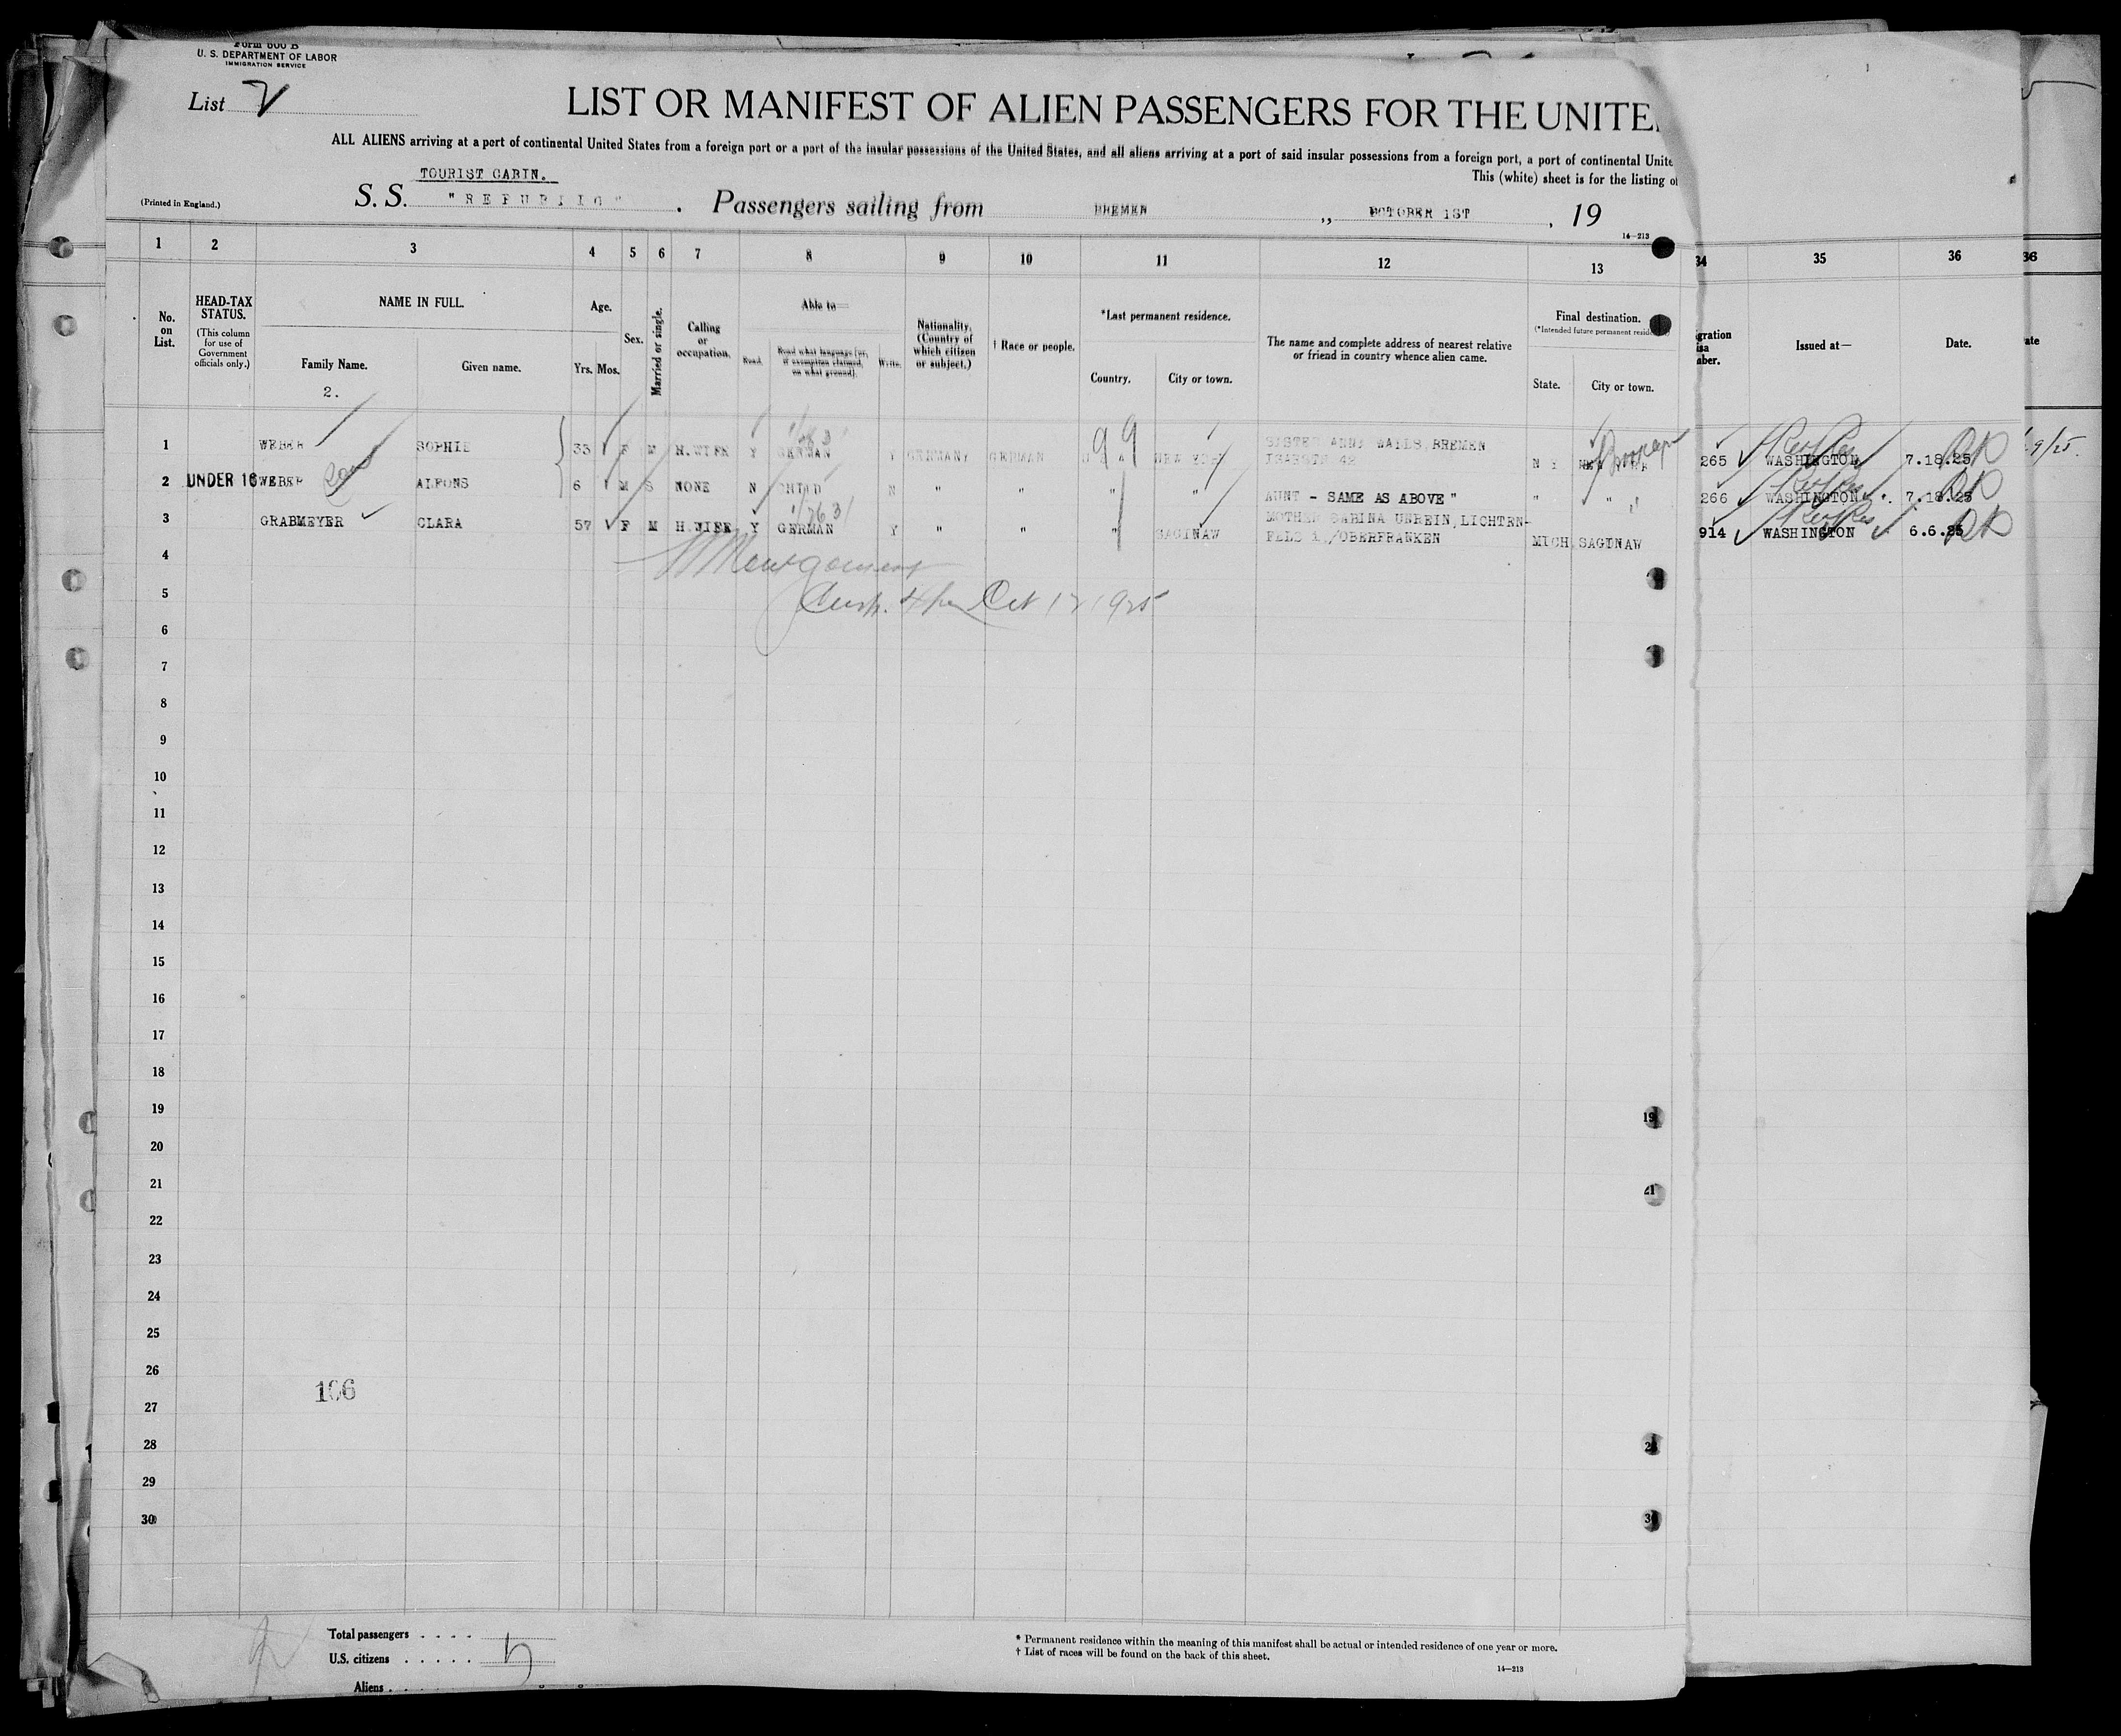 Form 600 B
U. S. DEPARTMENT OF LABOR
IMMIGRATION SERVICE
List
LIST OR MANIFEST OF ALIEN PASSENGERS FOR THE UNITE
ALL ALIENS arriving at a port of continental United States from a foreign port or a port of the insular possessions of the United States, and all aliens arriving at a port of said insular possessions from a foreign port, a port of continental Unite
This (white) sheet is for the listing of
TOURIST CABIN.
(Printed in England.) S. S. "REPUBLIC". Passengers sailing from BREMEN ,, OCTOBER 1ST, 19
14—213
1 2 3 4 5 6 7 8 9 10 11 12 13 34 35 36 36
No. on List.
HEAD-TAX STATUS.
(This column for use of Government officials only.)
NAME IN FULL.
Family Name. Given name.
2.
Age.
Yrs. Mos.
Sex.
Married or single.
Calling or occupation.
Able to—
Read. Read what language [or, if exemption claimed, on what ground]. Write.
Nationality. (Country of which citizen or subject.)
† Race or people.
*Last permanent residence.
Country. City or town.
The name and complete address of nearest relative or friend in country whence alien came.
Final destination.
(*Intended future permanent reside
State. City or town.
gration
isa
mber.
Issued at—
Date.
ate
1 WEBER SOPHIE 33 F M H.WIFE Y GERMAN Y GERMANY GERMAN U S A NEW YORK SISTER ANNA BREMEN 42 N Y NEW YORK Brooklyn 265 WASHINGTON 7.18.25 9/25.
2 UNDER 16 WEBER ALFONS 6 M S NONE N CHILD N " " " " AUNT - SAME AS ABOVE " " " 266 WASHINGTON 7.18.25
3 GRABMEYER CLARA 57 F M H.WIFE Y GERMAN Y " " " SAGINAW MOTHER SABINA UNREIN, LICHTEN-
FELS /OBERFRANKEN MICH SAGINAW 914 WASHINGTON 6.6.25
99
4
Montgomery
5
Oct 12 1925
6
7
8
9
10
11
12
13
14
15
16
17
18
19 19
20
21 21
22
23
24
25
26
106
27
28
29
30
Total passengers . . . .
U.S. citizens . . . . .
Aliens . .
* Permanent residence within the meaning of this manifest shall be actual or intended residence of one year or more.
† List of races will be found on the back of this sheet.
14—213